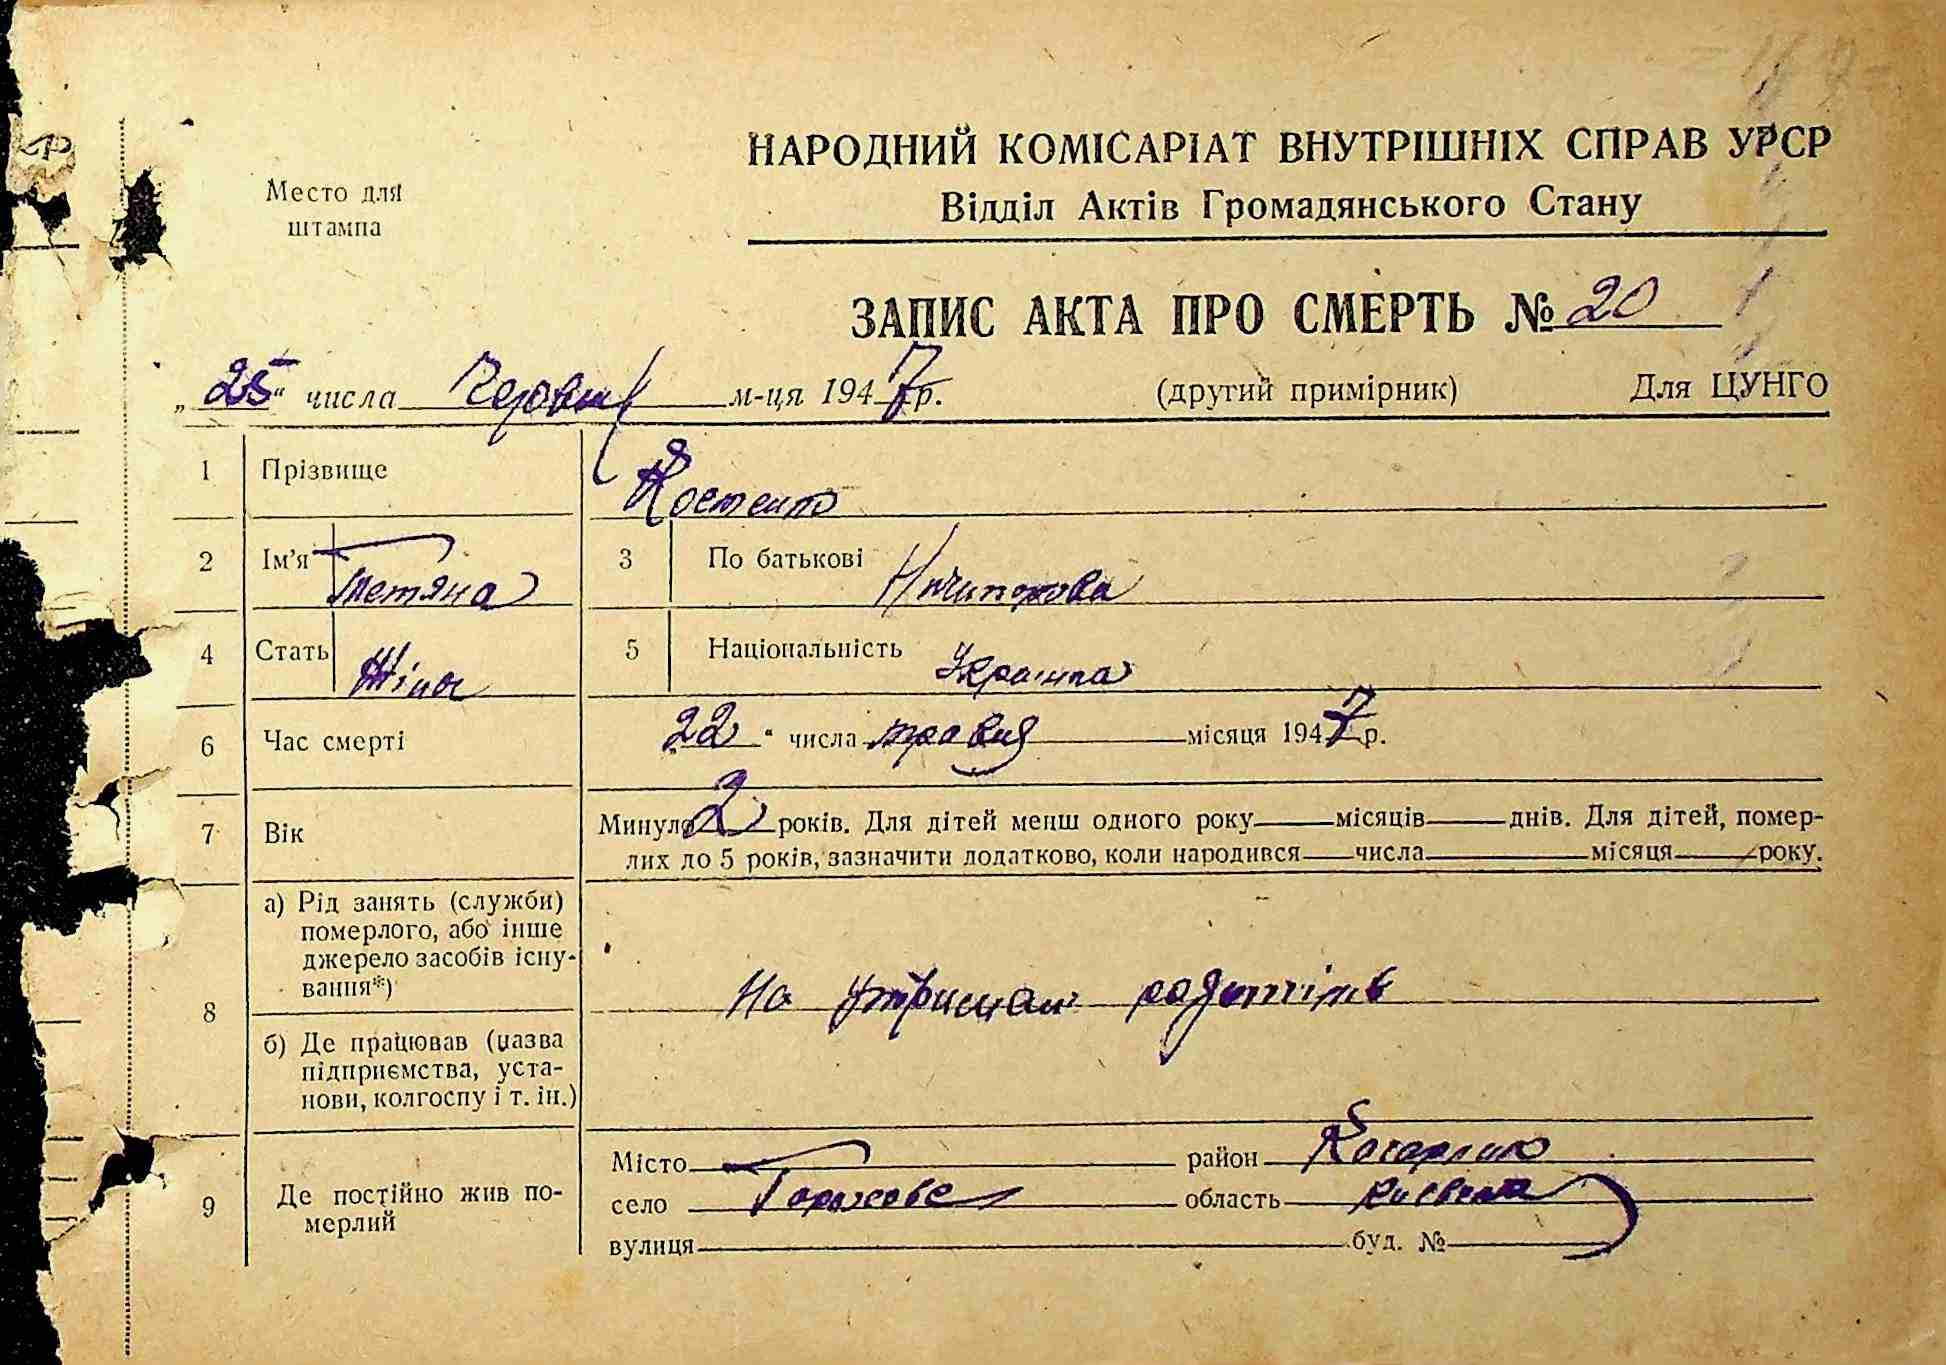 НАРОДНИЙ КОМІСАРІАТ ВНУТРІШНІХ СПРАВ УРСР
Відділ Актів Громадянського Стану
Место для
штампа
ЗАПИС АКТА ПРО СМЕРТЬ № 20
„25“ числа Червня м-ця 1947 р. (другий примірник) Для ЦУНГО
1 Прізвище Костенко
2 Ім’я Тетяна 3 По батькові Ничипорова
4 Стать Жіноч 5 Національність Українка
6 Час смерті 22“ числа травня місяця 1947 р.
7 Вік Минуло 2 років. Для дітей менш одного року місяців днів. Для дітей, помер-
лих до 5 років, зазначити додатково, коли народився числа місяця року.
8 а) Рід занять (служби)
померлого, або інше
джерело засобів існу-
вання*)
На утриман родителів
б) Де працював (назва
підприємства, уста-
нови, колгоспу і т. ін.)
9 Де постійно жив по-
мерлий
Місто район Кагарлик
село область Київська
вулиця буд. №